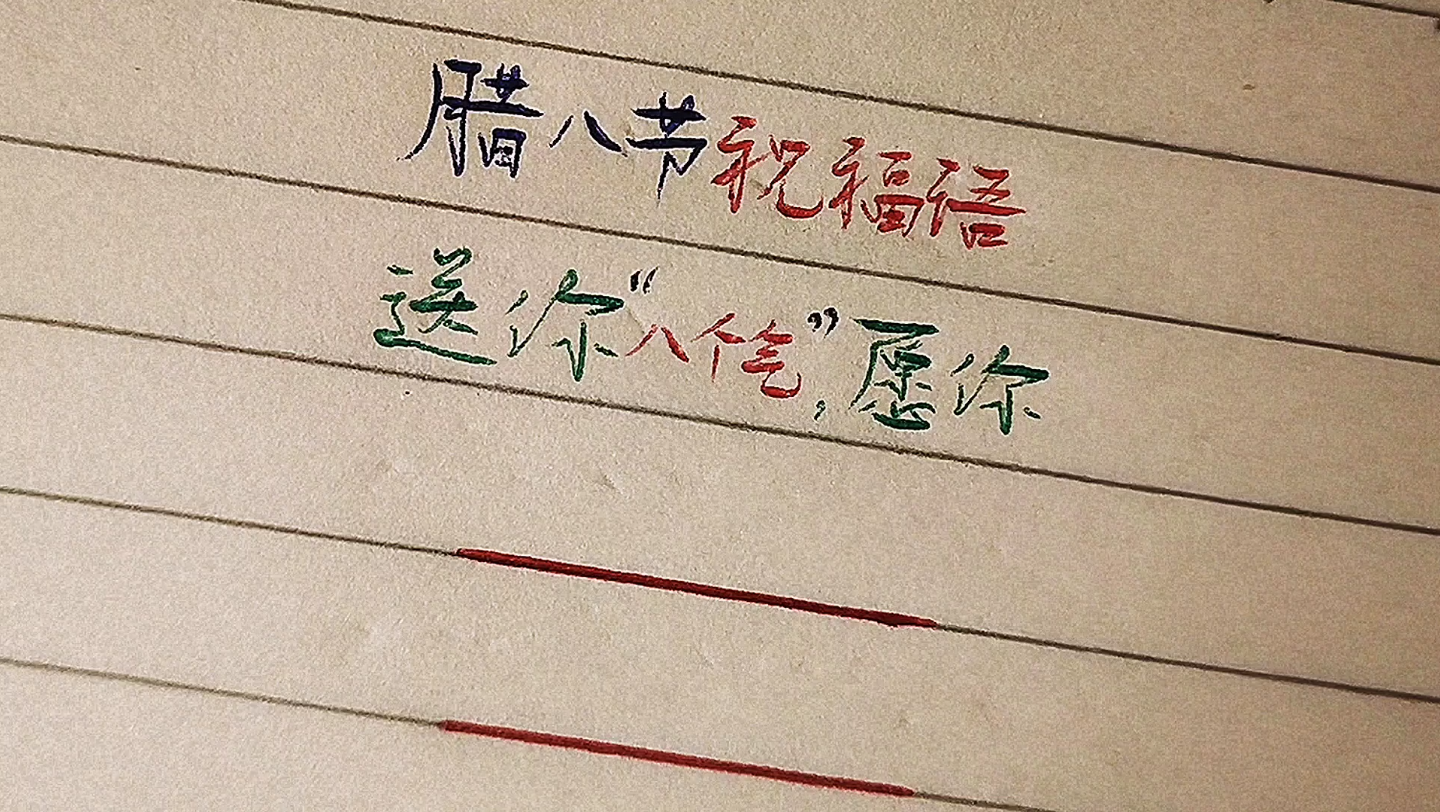 腊八节祝福语
送你“八个气”,愿你